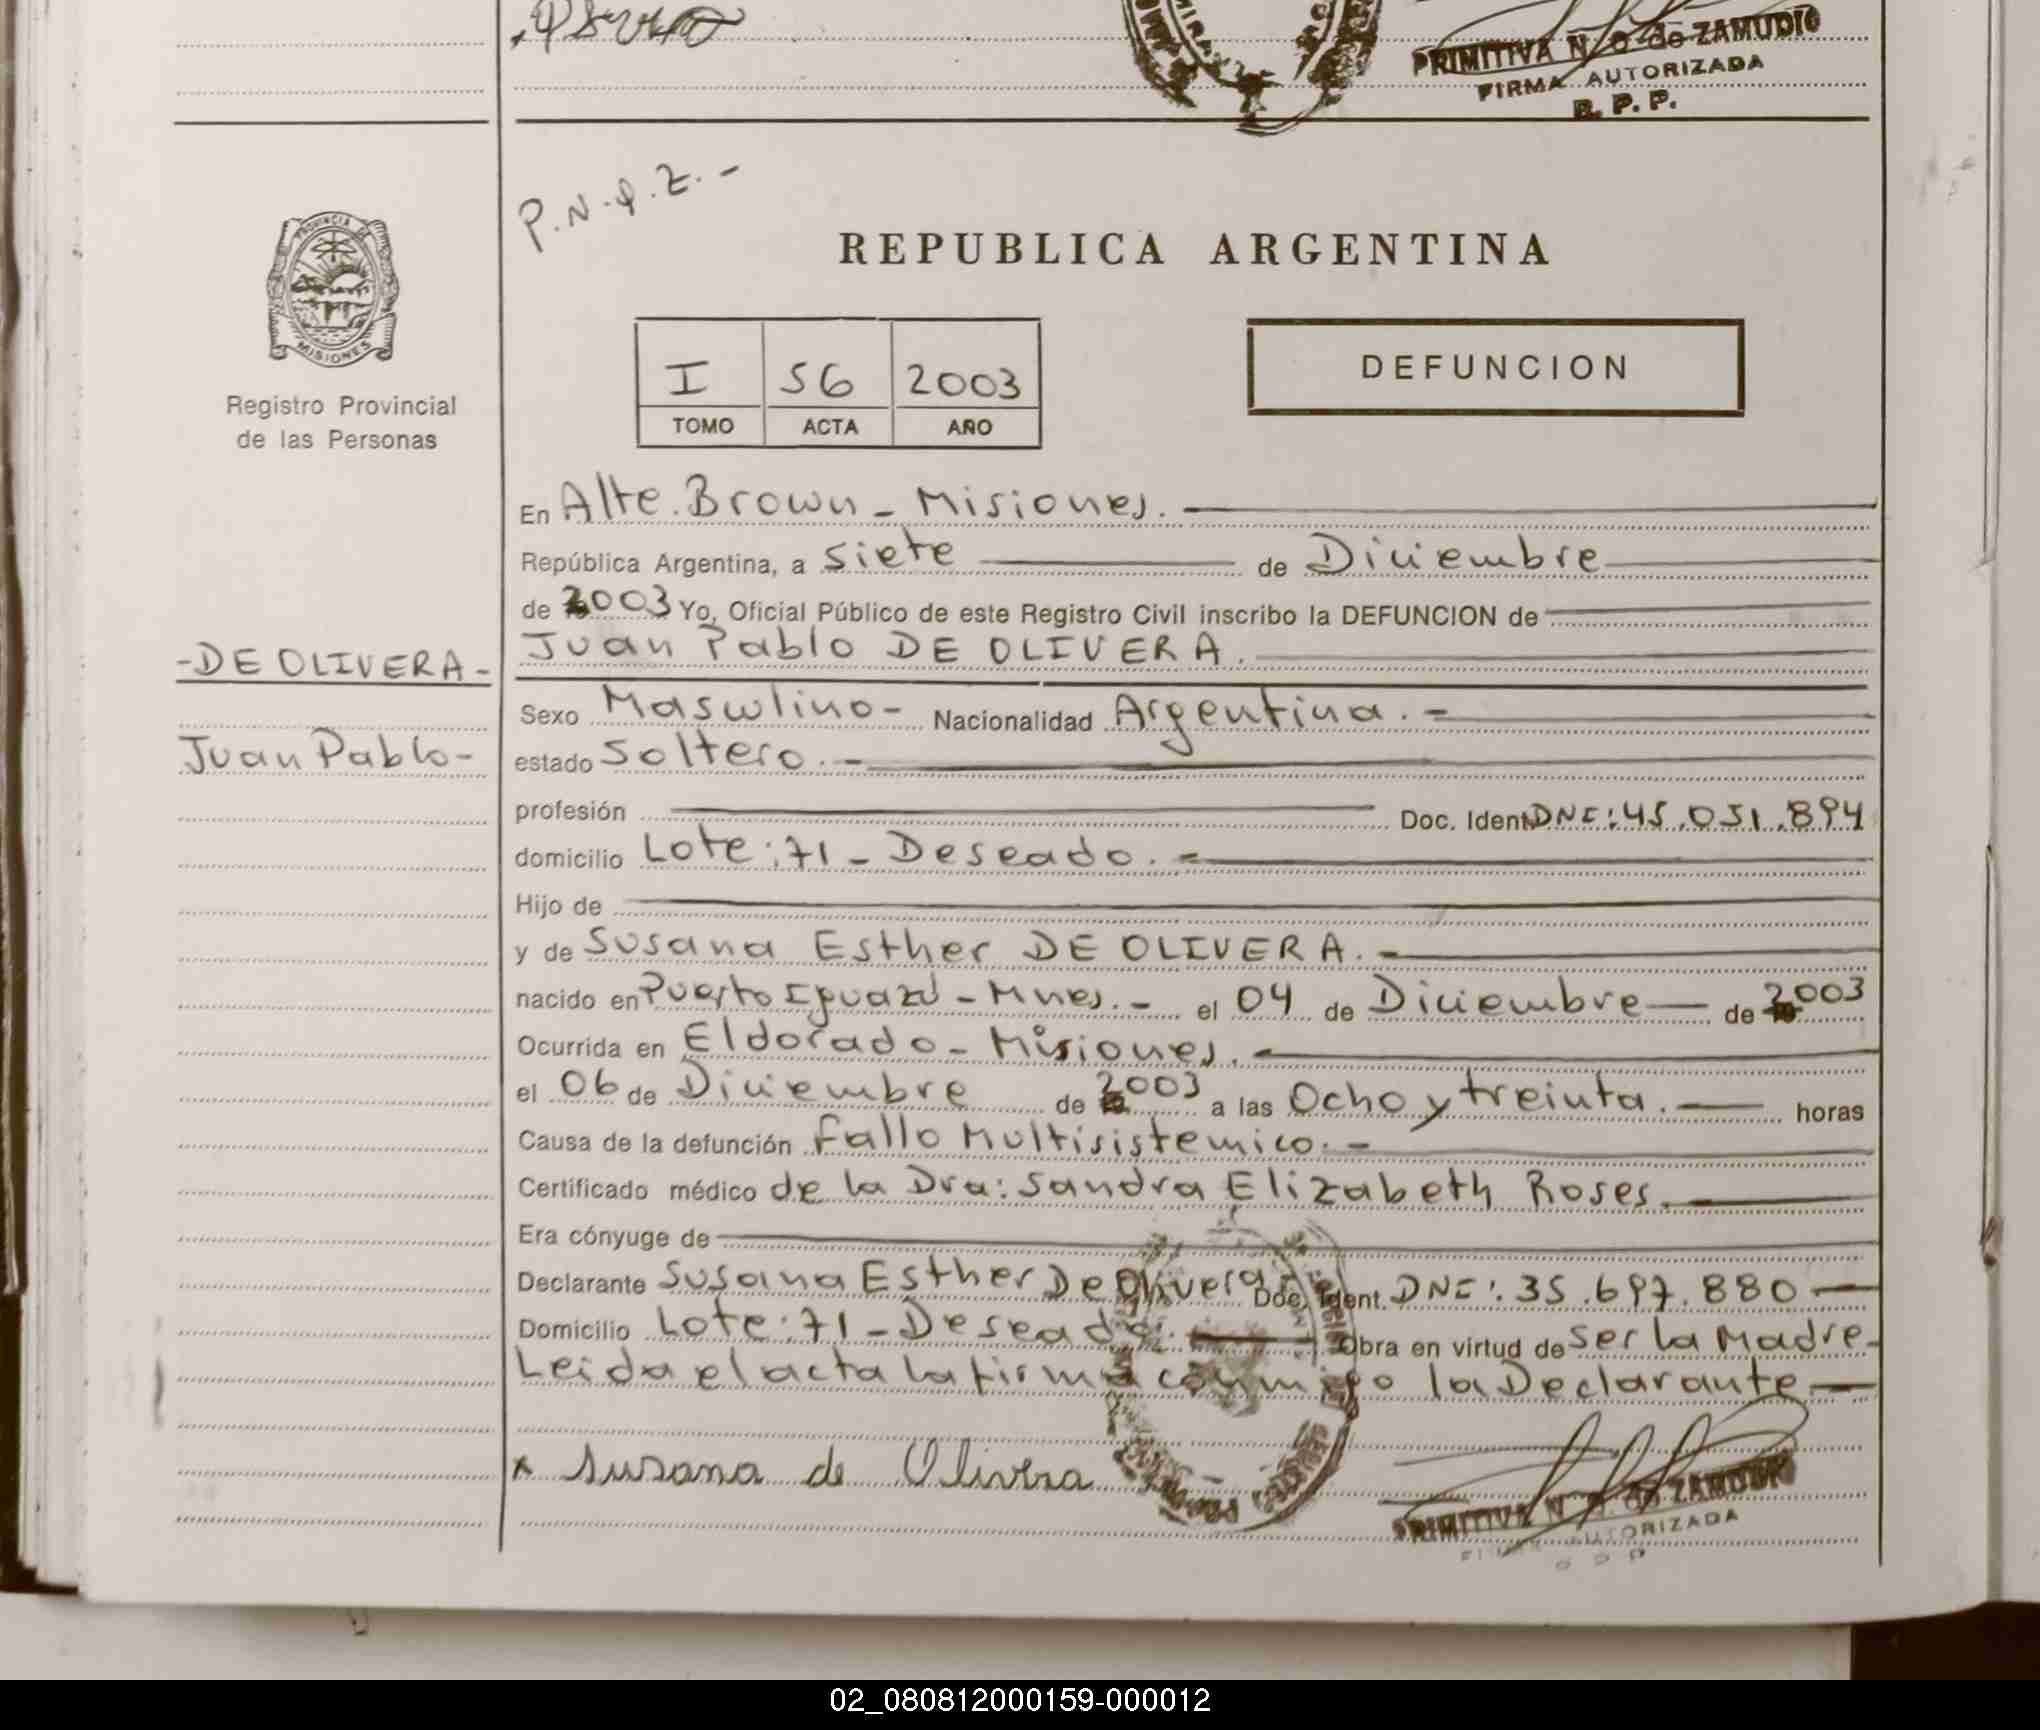 PRIMITIVA N. O. de ZAMUDIO
FIRMA AUTORIZADA
R. P. P.
P.N.Q.Z.-
PROVINCIA DE
MISIONES
Registro Provincial
de las Personas
REPUBLICA ARGENTINA
I 56 2003
TOMO ACTA AÑO
DEFUNCION
En Alte. Brown - Misiones.
República Argentina, a siete de Diciembre
de 2003 Yo, Oficial Público de este Registro Civil inscribo la DEFUNCION de
Juan Pablo DE OLIVERA.
-DE OLIVERA-
Juan Pablo-
Sexo Masculino- Nacionalidad Argentina.-
estado Soltero.-
profesión Doc. Ident. DNI: 45.051.894
domicilio Lote: 71 - Deseado.-
Hijo de
y de Susana Esther DE OLIVERA.-
nacido en Puerto Iguazú - Mnes.- el 04 de Diciembre de 2003
Ocurrida en Eldorado - Misiones.-
el 06 de Diciembre de 2003 a las Ocho y treinta. horas
Causa de la defunción Fallo Multisistemico.-
Certificado médico de la Dra: Sandra Elizabeth Roses.
Era cónyuge de
Declarante Susana Esther De Olivera Doc. Ident. DNI: 35.697.880
Domicilio Lote: 71 - Deseado. Obra en virtud de ser la Madre-
Leida el acta la firma conmigo la Declarante
x Susana de Olivera
PRIMITIVA N. O. de ZAMUDIO
FIRMA AUTORIZADA
02_080812000159-000012